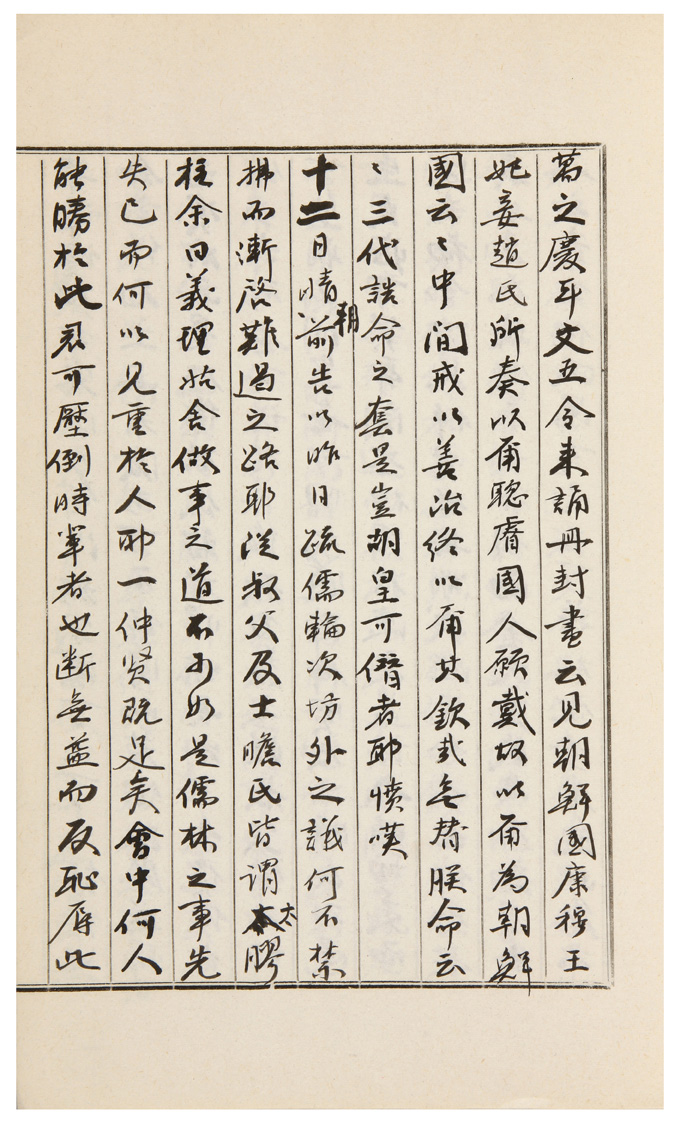 萬之慶年文五令來誦冊封書云見朝鮮國康穆王
妃妾趙氏所奏以爾聰睿國人願戴故以爾為朝鮮
國云〻中間戒以善治終以爾其欽哉無替朕命云
〻三代誥命之套是豈胡皇可僭者耶憤嘆
十二日晴朝前告以昨日疏儒輪次坊外之議何不禁
拂而漸啓難過之路耶從叔父及士瞻氏皆謂太膠
柱余曰義理姑舍做事之道不可如是儒林之事先
失己而何以見重於人耶一仲賢既足矣會中何人
能勝於此君可壓倒時輩者也斷無益而反恥辱此